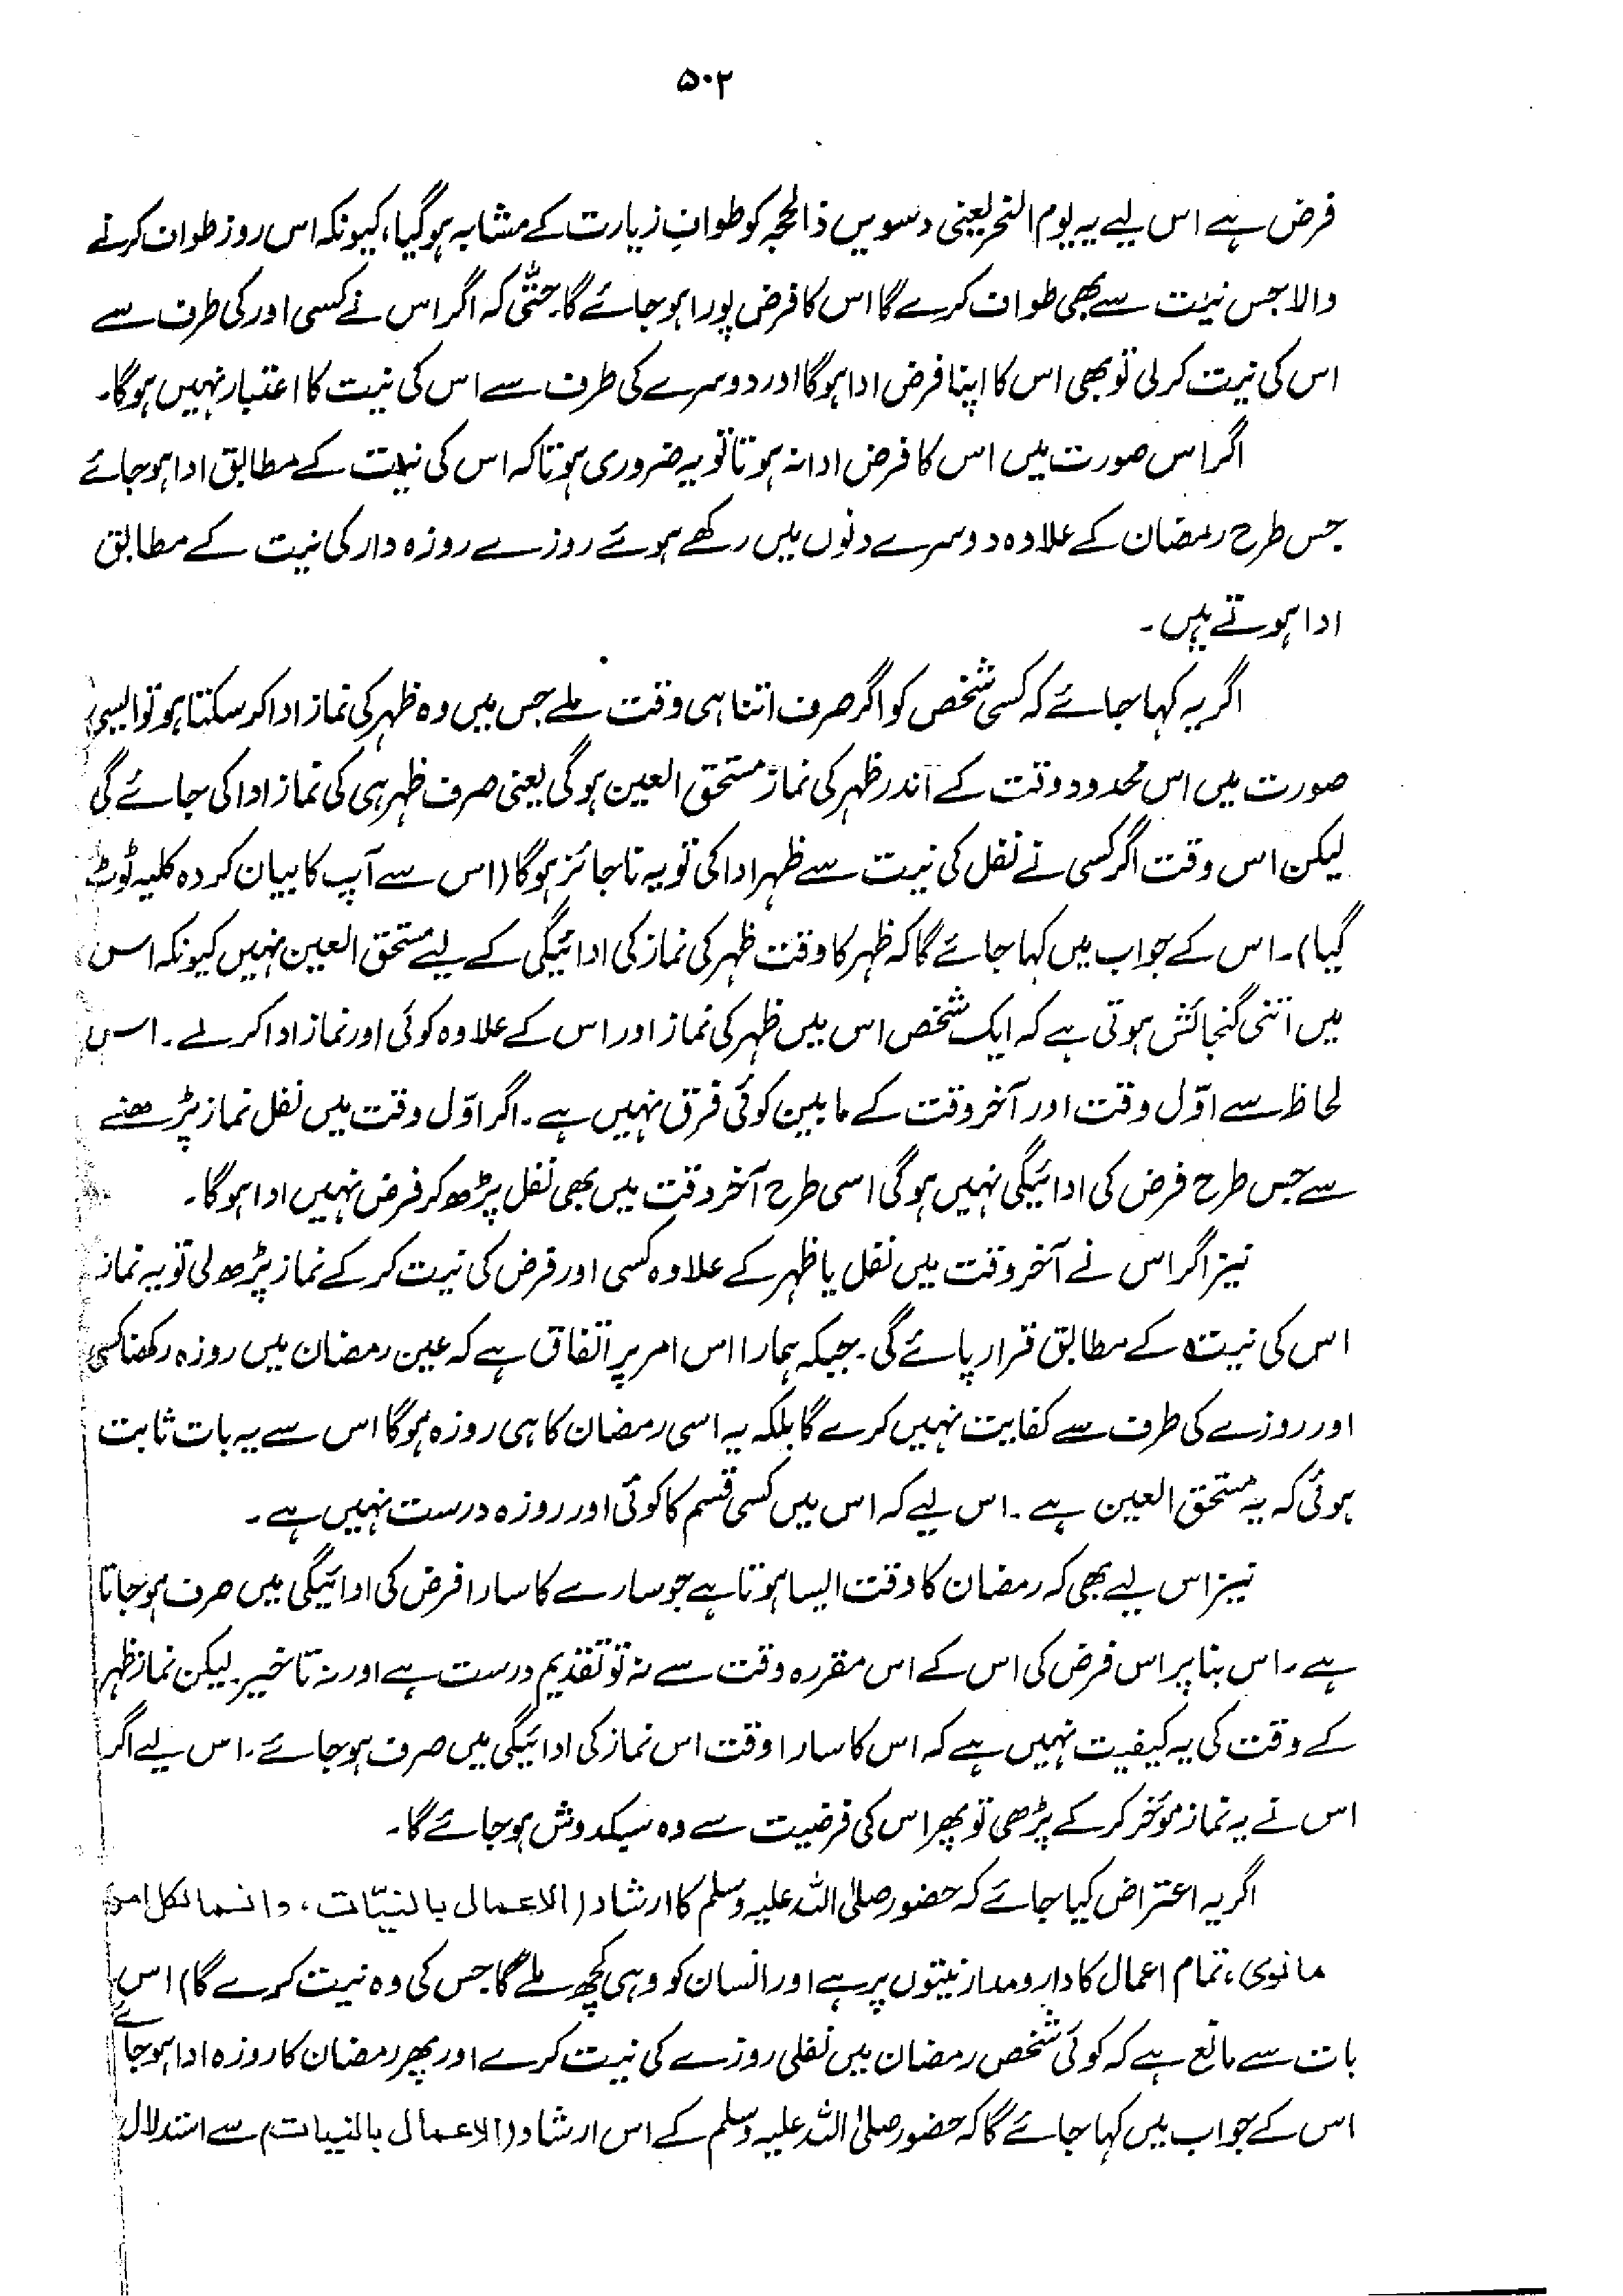 ۵۰۲
فرض ہے اس لیے یہ یوم النحر یعنی دسویں ذالحجہ کو طوافِ زیارت کے مشابہ ہوگیا، کیونکہ اس روز طواف کرنے
والا جس نیت سے بھی طواف کرے گا اس کا فرض پورا ہوجائے گا۔ حتّٰی کہ اگر اس نے کسی اور کی طرف سے
اس کی نیت کرلی تو بھی اس کا اپنا فرض ادا ہوگا اور دوسرے کی طرف سے اس کی نیت کا اعتبار نہیں ہوگا۔
اگر اس صورت میں اس کا فرض ادا نہ ہوتا تو یہ ضروری ہوتا کہ اس کی نیت کے مطابق ادا ہوجائے
جس طرح رمضان کے علاوہ دوسرے دنوں میں رکھے ہوئے روزے روزہ دار کی نیت کے مطابق
ادا ہوتے ہیں۔
اگر یہ کہا جائے کہ کسی شخص کو اگر صرف اتنا ہی وقت ملے جس میں وہ ظہر کی نماز ادا کرسکتا ہو تو ایسی
صورت میں اس محدود وقت کے اندر ظہر کی نماز مستحق العین ہوگی یعنی صرف ظہر ہی کی نماز ادا کی جائے گی
لیکن اس وقت اگر کسی نے نفل کی نیت سے ظہر ادا کی تو یہ ناجائز ہوگا (اس سے آپ کا بیان کردہ کلیہ ٹوٹ
گیا)۔ اس کے جواب میں کہا جائے گا کہ ظہر کا وقت ظہر کی نماز کی ادائیگی کے لیے مستحق العین نہیں کیونکہ اس
میں اتنی گنجائش ہوتی ہے کہ ایک شخص اس میں ظہر کی نماز اور اس کے علاوہ کوئی اور نماز ادا کرلے۔ اس
لحاظ سے اوّل وقت اور آخر وقت کے مابین کوئی فرق نہیں ہے۔ اگر اوّل وقت میں نفل نماز پڑھنے
سے جس طرح فرض کی ادائیگی نہیں ہوگی اسی طرح آخر وقت میں بھی نفل پڑھ کر فرض نہیں ادا ہوگا۔
نیز اگر اس نے آخر وقت میں نفل یا ظہر کے علاوہ کسی اور فرض کی نیت کرکے نماز پڑھ لی تو یہ نماز
اس کی نیت کے مطابق قرار پائے گی۔ جبکہ ہمارا اس امر پر اتفاق ہے کہ عین رمضان میں روزہ رکھنا کسی
اور روزے کی طرف سے کفایت نہیں کرے گا بلکہ یہ اسی رمضان کا ہی روزہ ہوگا اس سے یہ بات ثابت
ہوئی کہ یہ مستحق العین ہے۔ اس لیے کہ اس میں کسی قسم کا کوئی اور روزہ درست نہیں ہے۔
نیز اس لیے بھی کہ رمضان کا وقت ایسا ہوتا ہے جو سارے کا سارا فرض کی ادائیگی میں صرف ہوجاتا
ہے۔ اس بنا پر اس فرض کی اس کے اس مقررہ وقت سے نہ تو تقدیم درست ہے اور نہ تاخیر۔ لیکن نماز ظہر
کے وقت کی یہ کیفیت نہیں ہے کہ اس کا سارا وقت اس نماز کی ادائیگی میں صرف ہوجائے۔ اس لیے اگر
اس نے یہ نماز مؤخر کرکے پڑھی تو پھر اس کی فرضیت سے وہ سبکدوش ہوجائے گا۔
اگر یہ اعتراض کیا جائے کہ حضور صلی اللہ علیہ وسلم کا ارشاد (الاعمال بالنیّات، وانما لکل امرئ
ما نوی، تمام اعمال کا دارومدار نیتوں پر ہے اور انسان کو وہی کچھ ملے گا جس کی وہ نیت کرے گا) اس
بات سے مانع ہے کہ کوئی شخص رمضان میں نفلی روزے کی نیت کرے اور پھر رمضان کا روزہ ادا ہوجائے
اس کے جواب میں کہا جائے گا کہ حضور صلی اللہ علیہ وسلم کے اس ارشاد (الاعمال بالنیات) سے استدلال